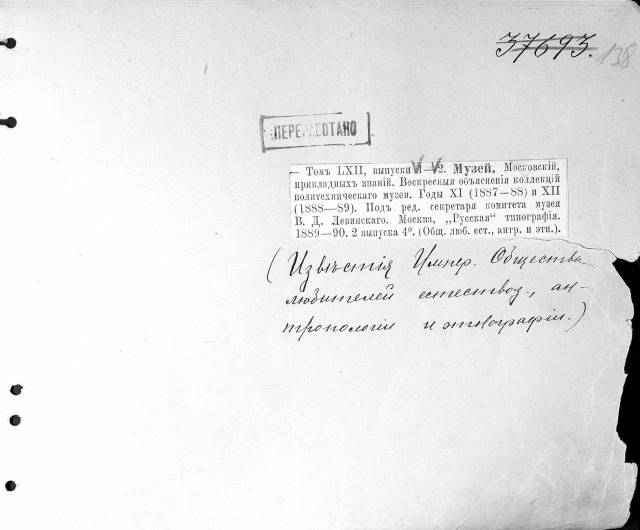 37693. 138
ПЕРЕРАБОТАНО
— Томъ LXII, выпуски 1—2. Музей, Московскій,
прикладныхъ знаній. Воскресныя объясненія коллекцій
политехническаго музея. Годы XI (1887—88) и XII
(1888—89). Подъ ред. секретаря комитета музея
В. Д. Левинскаго. Москва, „Русская“ типографія.
1889—90. 2 выпуска 4º. (Общ. люб. ест., антр. и этн.).
(Извѣстія Импер. Общества
любителей естествоз., ан-
тропологіи и этнографіи.)